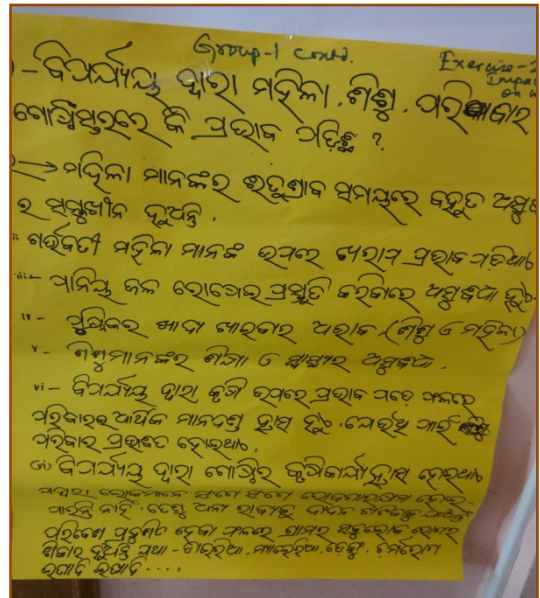 Group-1 contd.
Exercise-2
Impac
on w
- ବିପର୍ଯ୍ୟୟ ଦ୍ୱାରା ମହିଳା, ଶିଶୁ, ପରିବାର
ଗୋଷ୍ଠିସ୍ତରରେ କି ପ୍ରଭାବ ପଡ଼ିଛି ?
→ ମହିଳା ମାନଙ୍କର ଋତୁଶ୍ରାବ ସମୟରେ ବହୁତ ଅସୁବି
ର ସମ୍ମୁଖୀନ ହୁଅନ୍ତି .
ii ଗର୍ଭବତୀ ମହିଳା ମାନଙ୍କ ଉପରେ ଖରାପ ପ୍ରଭାବ ପଡିଥାଏ
iii - ପାନିୟ ଜଳ ରୋଷେଇ ପ୍ରସ୍ତୁତି କରିବାରେ ଅସୁବିଧା ହୁଏ
iv - ପୁଷ୍ଟିକର ଖାଦ୍ୟ ଖାଇବାର ଅଭାବ (ଶିଶୁ ଓ ମହିଳା)
v - ଶିଶୁମାନଙ୍କର ଶିକ୍ଷା ଓ ସ୍ୱାସ୍ଥ୍ୟର ଅସୁବିଧା .
vi - ବିପର୍ଯ୍ୟୟ ଦ୍ୱାରା କୃଷି ଉପରେ ପ୍ରଭାବ ପଡେ ଫଳରେ
ପରିବାରର ଆର୍ଥିକ ମାନଦଣ୍ଡ ହ୍ରାସ ହୁଏ . ଯେଉଁଥି ପାଇଁ
ପରିବାର ପ୍ରଭାବିତ ହୋଇଥାଏ .
vii) ବିପର୍ଯ୍ୟୟ ଦ୍ୱାରା ଗୋଷ୍ଠିର କୃଷିକାର୍ଯ୍ୟ ହ୍ରାସ ହୋଇଥାଏ
ଲୋକମାନେ ସଂଗେ ସଂଗେ ରୋଜଗାରକ୍ଷମ ହୋଇ-
ପାରନ୍ତି ନାହିଁ . ତେଣୁ ଅନ୍ୟ ରାଜ୍ୟକୁ ଦାଦନ
ପରିବେଶ ପ୍ରଦୁଶିତ ହେବା ଫଳରେ ଗ୍ରାମର ସବୁଲୋକ ରୋଗର
ଶିକାର ହୁଅନ୍ତି ଯଥା - ଡାଇରିଆ, ମ୍ୟାଲେରିଆ, ଡେଙ୍ଗୁ, ଚର୍ମରୋଗ
ଇତ୍ୟାଦି ଇତ୍ୟାଦି ....